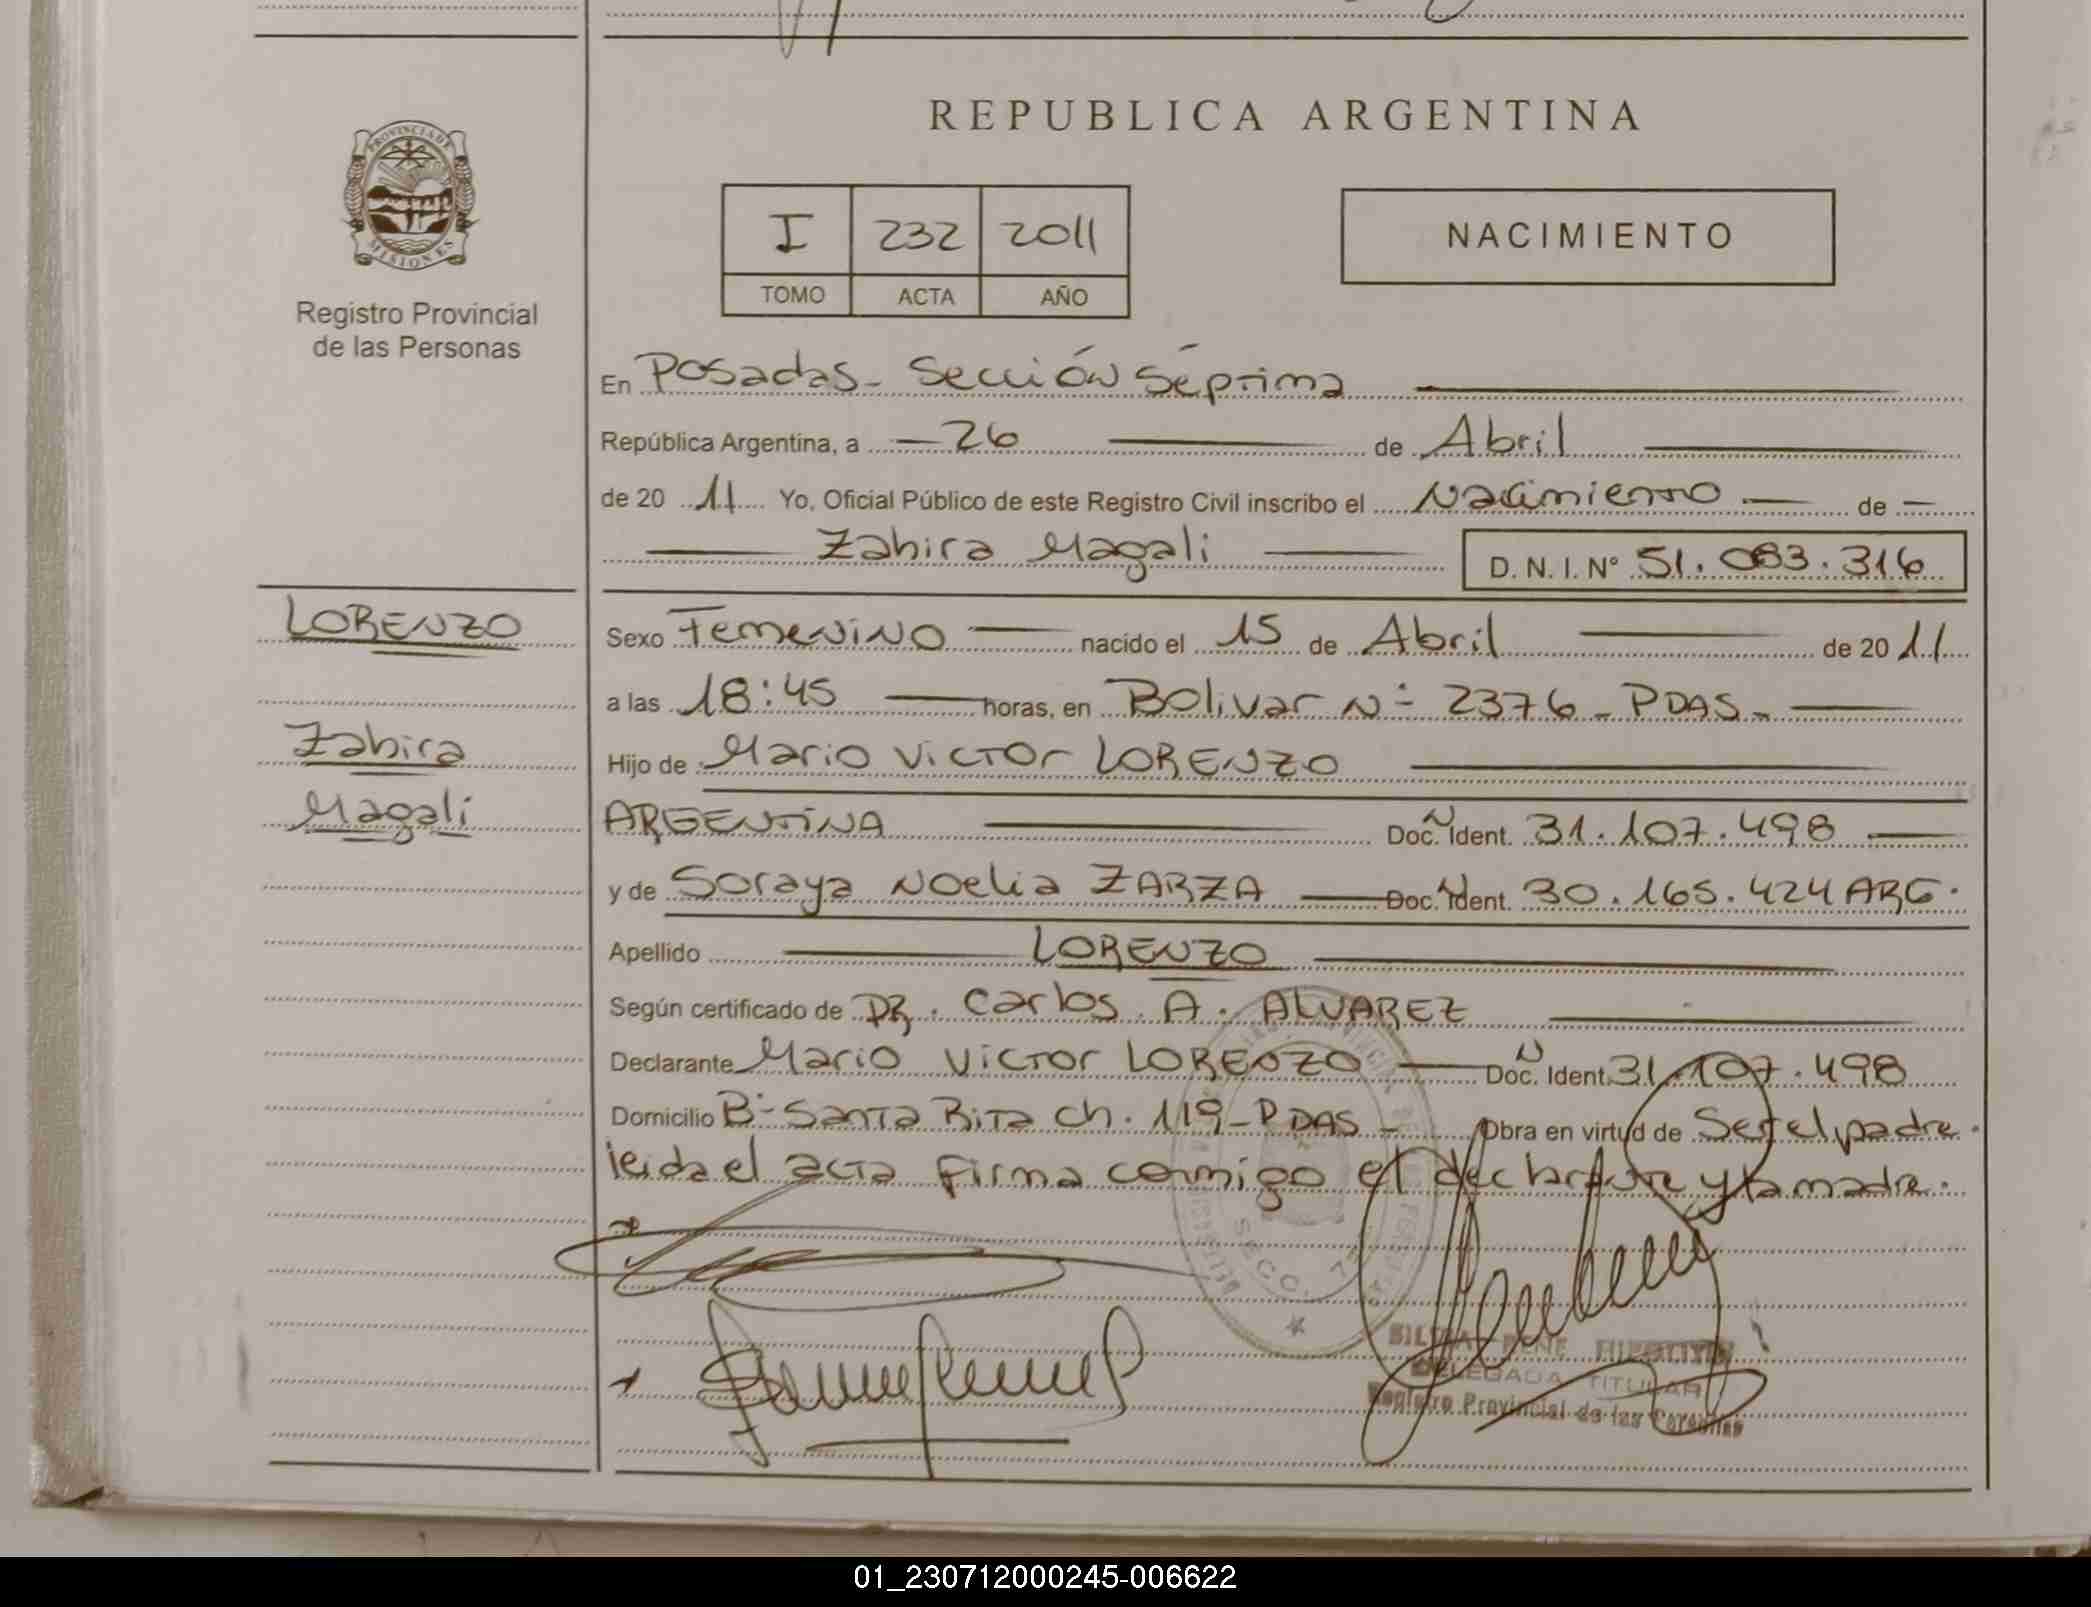 REPUBLICA ARGENTINA
PROVINCIA DE
MISIONES
Registro Provincial
de las Personas
I 232 2011
TOMO ACTA AÑO
NACIMIENTO
En Posadas - Sección Séptima
República Argentina, a 26 de Abril
de 20 11 Yo, Oficial Público de este Registro Civil inscribo el Nacimiento de
Zahira Magali D. N. I. Nº 51.083.316
LORENZO
Zahira
Magali
Sexo Femenino nacido el 15 de Abril de 20 11
a las 18:45 horas, en Bolivar Nº 2376 - PDAS -
Hijo de Mario Victor LORENZO
ARGENTINA Doc. N Ident. 31.107.498
y de Soraya Noelia ZARZA Doc. N Ident. 30.165.424 ARG.
Apellido LORENZO
Según certificado de DR. Carlos A. ALVAREZ
Declarante Mario Victor LORENZO Doc. N Ident. 31.107.498
Domicilio Bº Santa Rita Ch. 119 - PDAS - Obra en virtud de Ser el padre.
leida el acta firma conmigo el declarante y la madre.
SECC. 7
DELEGADA TITULAR
Registro Provincial de las Personas
01_230712000245-006622